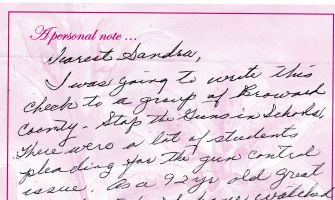 A personal note ...
Dearest Sandra,
I was going to write this
check to a group of Broward
County - Stop the Guns in Schools,
There were a lot of students
pleading for the gun control
issue. As a 92 yr old great
watched